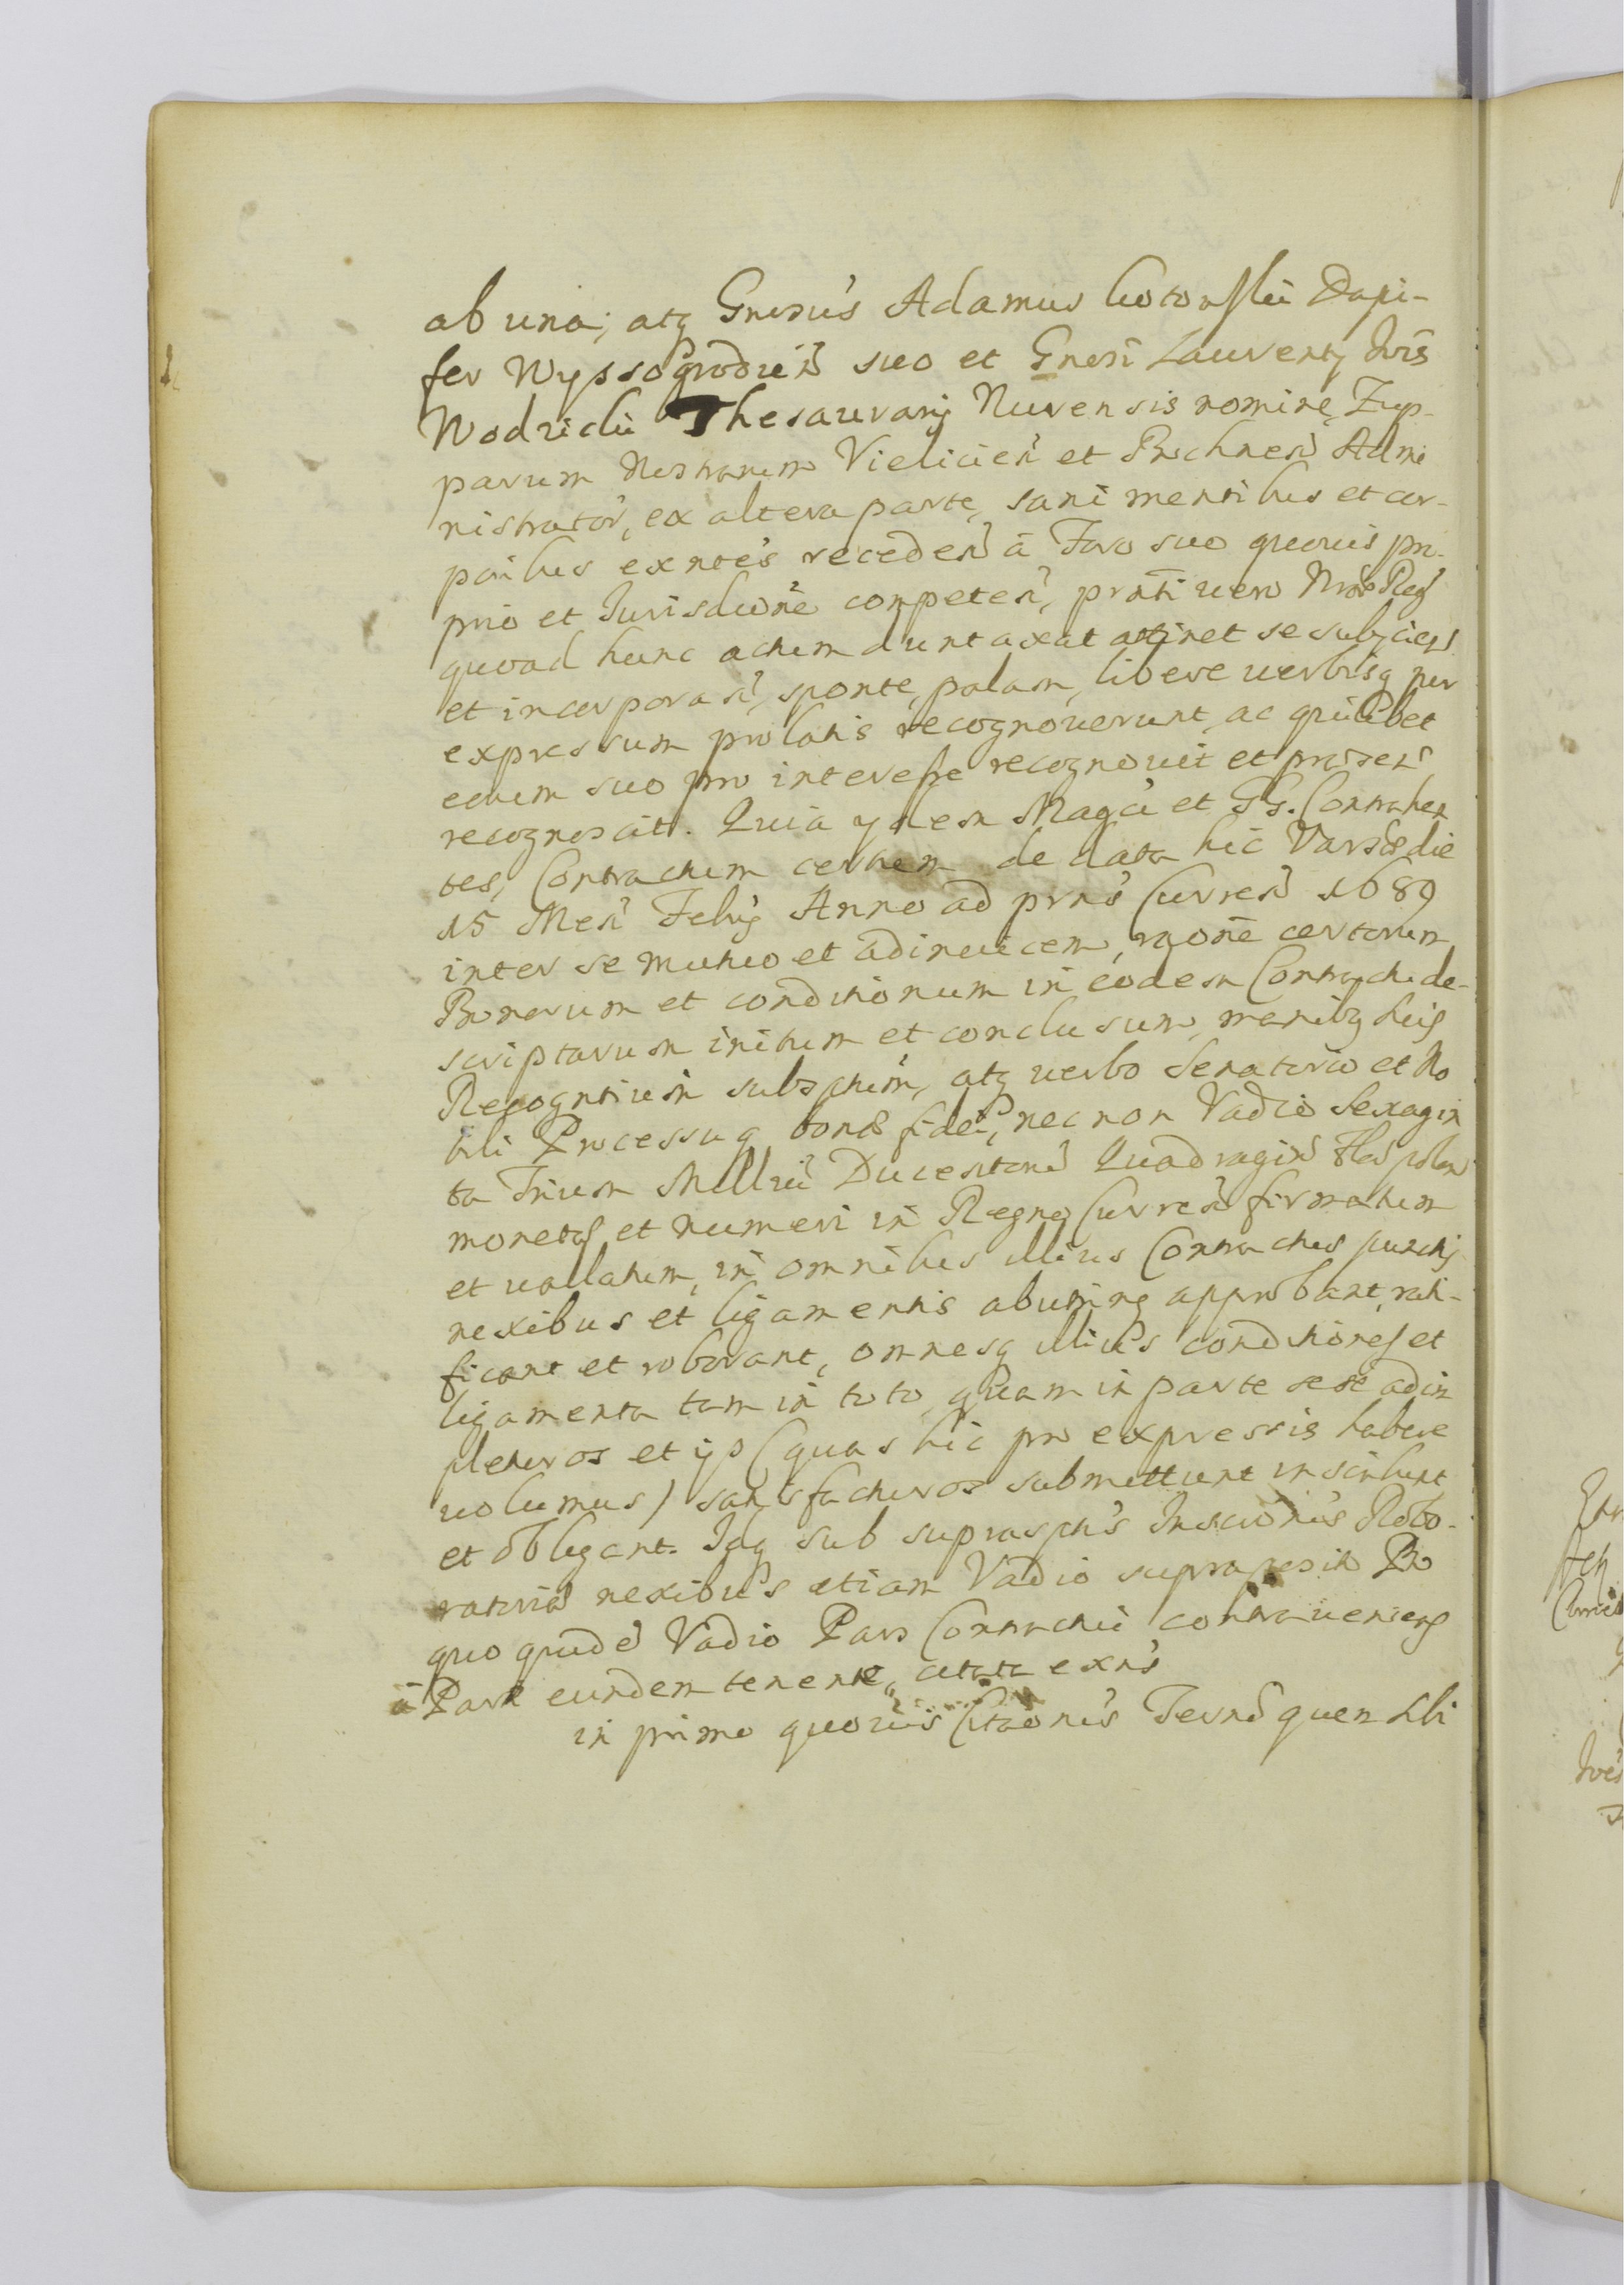 ab una; atq Gnrsus Adamus Kotowski Dapi-
fer Wyssogrodień suo et Gnrsi Laurenty Jois
Wodzicki Thesaurarij Nurensis nomine, Zup-
parum Nostrarum Vielicień et Bochneń Admi
nistrator, ex altera parte, sani mentibus et cor-
poribus exntes recedeń á Foro suo quovis pro-
prio et Jurisdcione competeń, prnti vero Nrae Reg
quoad hunc actum duntaxat attinet se subjcień
et incorporań, sponte, palam, libere verbisq per
expressum prolatis recognoverunt, ac quilibet
eorum suo pro interesse recognovit et praeseń
recognoscit. Quia ydem Magci et GG. Contrahen
tes, Contractum certum de data hic Varsae die
15 Meń Febrij Anno ad prns Curreń 1689
inter se mutuo et adinvicem, raone certorum
Bonorum et conditionum in eodem Contractu de-
scriptarum initum et conclusum, manibq huij
Recogntium subsptum, atq verbo Senatorio et No
bili Processuq bonae fidei, nec non Vadio Sexagin
ta Trium Mille Ducentorũ Quadraginta flor polon
monetae et numeri in Regno Curreń firmatum
et vallatum, in omnibus illius Contractus punctis
nexibus et ligamentis abunine approbant, rati-
ficant et roborant, omnesq illius conditiones et
ligamenta tam in toto quam in parte sese adim
pleturos et ijs (quas hic pro expressis habere
volumus) satisfacturos submittunt inscribunt
et obligant. Idq sub suprasptis Inscrõnis Robo-
ratoriae nexibus etiam Vadio supraposito Pro
quo quidẽ Vadio Pars Contractui contraveniens
á Parte eundem tenente, citata exns
in primo quovis Citãonis Termõ quem sibi